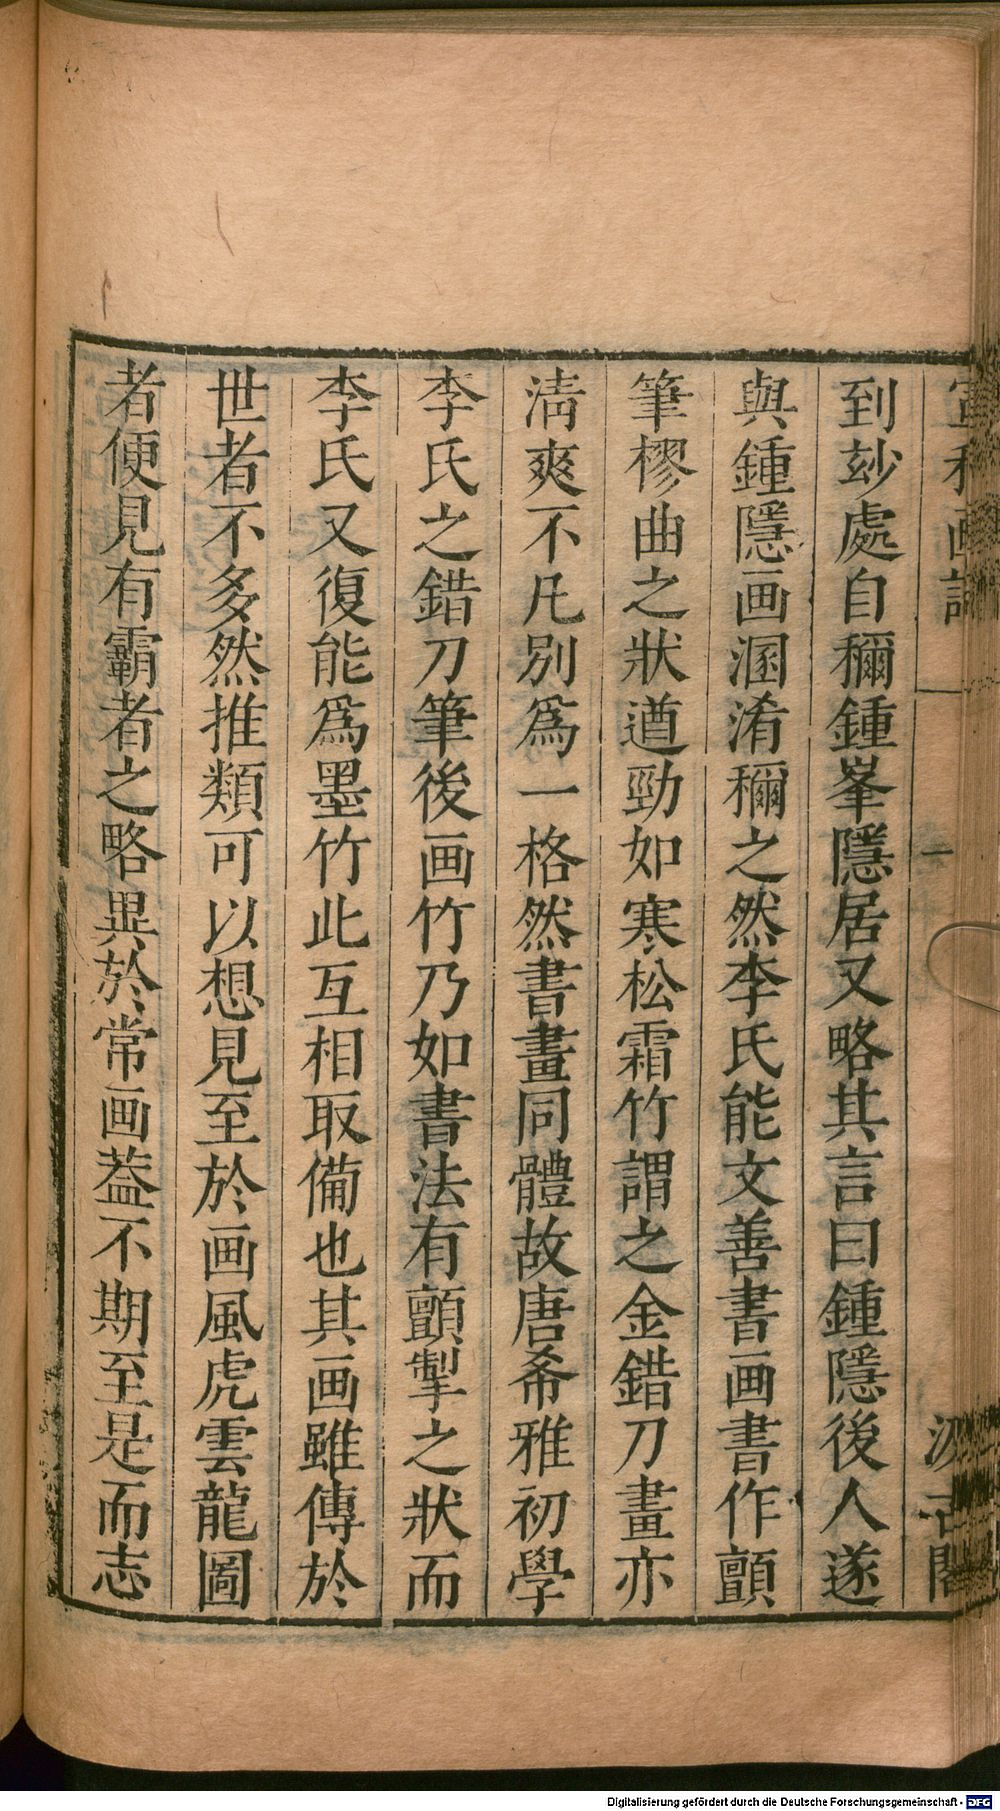 宣和画譜 一 汲古閣
到玅處自稱鍾峯隱居又略其言曰鍾隱後人遂
與鍾隱画溷淆稱之然李氏能文善書画書作顫
筆樛曲之狀遒勁如寒松霜竹謂之金錯刀畫亦
淸爽不凢別爲一格然書畫同體故唐希雅初學
李氏之錯刀筆後画竹乃如書法有顫掣之狀而
李氏又復能爲墨竹此互相取備也其画雖傳於
世者不多然推類可以想見至於画風虎雲龍圖
者便見有霸者之略異於常画葢不期至是而志
Digitalisierung gefördert durch die Deutsche Forschungsgemeinschaft - DFG